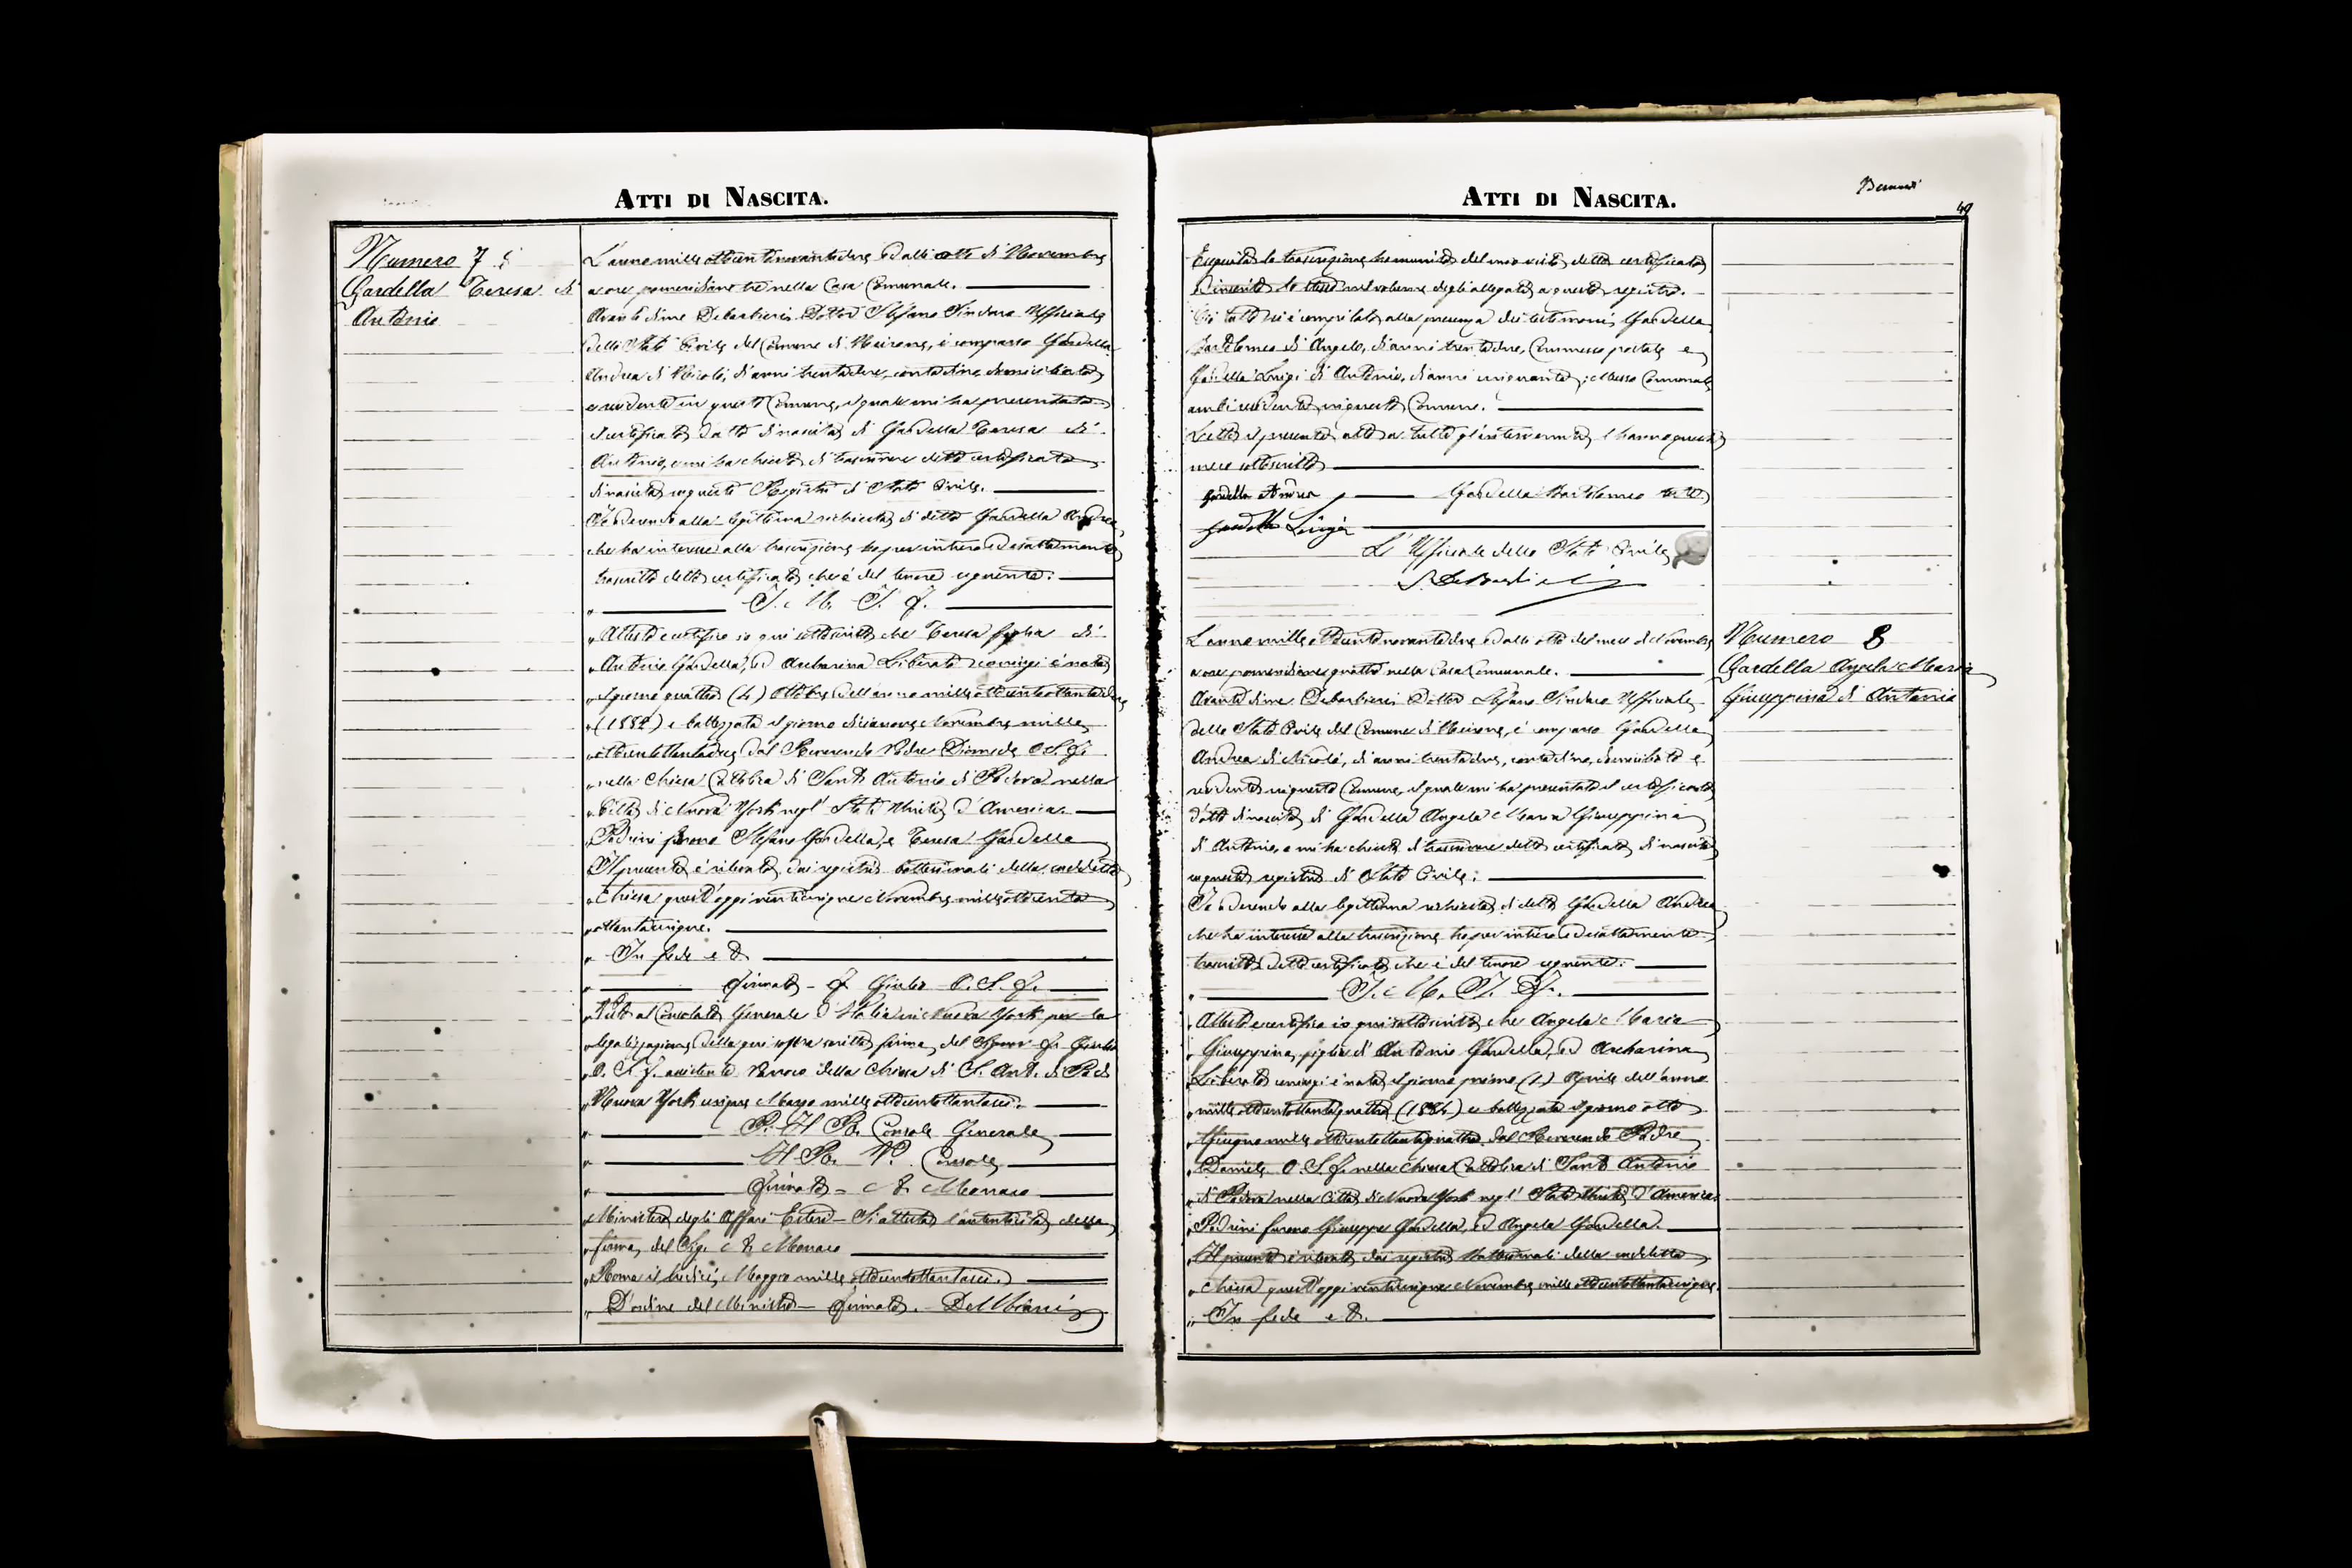 ATTI DI NASCITA.
Numero 7
Gardella Teresa di
Antonio
L'anno mille ottocentonovantadue ed alli otto di Novembre
a ore pomeridiane tre nella Casa Comunale.
Avanti di me Debarbieris Dottor Stefano Sindaco Ufficiale
dello Stato Civile del Comune di Neirone, è comparso Gardella
Andrea di Nicolò, di anni trentadue, contadino domiciliato
e residente in questo Comune, il quale mi ha presentato
il certificato d'atto di nascita di Gardella Teresa di
Antonio, e mi ha chiesto di trascrivere detto certificato
di nascita in questo Registro di Stato Civile.
Io aderendo alla legittima richiesta di detto Gardella Andrea
che ha interesse alla trascrizione ho per intero ed esattamente
trascritto detto certificato che è del tenore seguente:
" Attesto e certifico io qui sottoscritto che Teresa figlia di
" Antonio Gardella, ed Archarina Liberata coniugi è nata
" il giorno quattro (4) Ottobre dell'anno mille ottocentottantadue
" (1882) e battezzata il giorno diciannove Novembre mille
" ottocentottantadue dal Reverendo Padre Diomede O. S. F.
" nella Chiesa Cattolica di Sant' Antonio di Padova nella
" Città di Nuova York negl' Stati Uniti d' America.
" Padrini furono Stefano Gardella, e Teresa Gardella
" Il presente è rilevato dai registri battesimali della suddetta
" Chiesa quest'oggi venticinque Novembre mille ottocento
" ottantacinque.
" In fede e &
" Firmato - F. Giulio O. S. F.
" Visto al Consolato Generale d' Italia in Nuova York per la
" legalizzazione della qui sopra scritta firma del Signor F. Giulio
" O. S. F. assistente Parroco della Chiesa di S. Ant. di Pad.
" Nuova York Marzo mille ottocentottantasei.
" P. Il R. Console Generale
" Il R. V. Console
" Firmato - Monaco
" Ministero degli Affari Esteri - Si attesta l'autenticità della
" firma del Sig. Monaco
" Roma il tredici Maggio mille ottocentottantasei.
" D'ordine del Ministro - Firmato.
ATTI DI NASCITA.
49
Eseguita la trascrizione ho munito del mio visto detto certificato
inserito lo stesso nel volume degli allegati a questo registro.
Di tutto ciò è compilato alla presenza dei testimoni Gardella
Bartolomeo di Angelo, di anni trentadue, Commesso postale e
Gardella Luigi di Antonio, di anni cinquanta, Messo Comunale
ambi residenti in questo Comune.
Letto il presente atto a tutti gl'intervenuti l'hanno questi
meco sottoscritto
Gardella Andrea Gardella Bartolomeo
Gardella Luigi
L' Ufficiale dello Stato Civile
Numero 8
Gardella Angela Maria
Giuseppina di Antonio
L'anno mille ottocentonovantadue ed alli otto del mese di Novembre
a ore pomeridiane quattro nella Casa Comunale.
Avanti di me Debarbieris Dottor Stefano Sindaco Ufficiale
dello Stato Civile del Comune di Neirone, è comparso Gardella
Andrea di Nicolò, di anni trentadue, contadino, domiciliato e
residente in questo Comune, il quale mi ha presentato il certificato
d'atto di nascita di Gardella Angela Maria Giuseppina
di Antonio, e mi ha chiesto di trascrivere detto certificato di nascita
in questo registro di Stato Civile:
Io aderendo alla legittima richiesta di detto Gardella Andrea
che ha interesse alla trascrizione ho per intero ed esattamente
trascritto detto certificato che è del tenore seguente:
" Attesto e certifico io qui sottoscritto che Angela Maria
" Giuseppina, figlia d' Antonio Gardella, ed Archarina
" Liberata coniugi è nata il giorno primo (1) Aprile dell'anno
" mille ottocentottantaquattro (1884) e battezzata il giorno otto
" Giugno mille ottocentottantaquattro dal Reverendo Padre
" Daniele O. S. F. nella Chiesa Cattolica di Sant' Antonio
" di Padova nella Città di Nuova York negl' Stati Uniti d'America.
" Padrini furono Giuseppe Gardella, ed Angela Gardella.
" Il presente è rilevato dai registri Battesimali della suddetta
" Chiesa quest'oggi venticinque Novembre mille ottocentottantacinque.
" In fede e &.